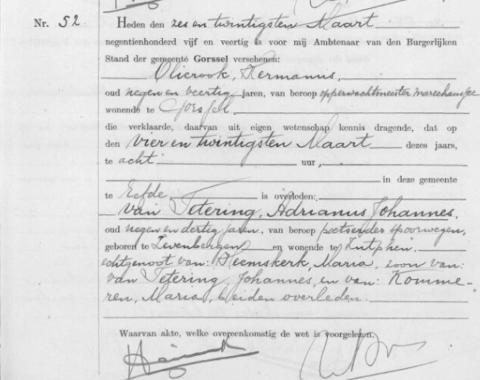 Nr. 52
Heden den zes en twintigsten Maart
negentienhonderd vijf en veertig is voor mij Ambtenaar van den Burgerlijken
Stand der gemeente Gorssel verschenen:
Olierook, Hermanus,
oud negen en veertig jaren, van beroep opperwachtmeester marechaussee
wonende te Gorssel
die verklaarde, daarvan uit eigen wetenschap kennis dragende, dat op
den vier en twintigsten Maart dezes jaars,
te acht uur,
in deze gemeente
te Eefde is overleden:
van Tetering, Adrianus Johannes,
oud negen en dertig jaren, van beroep poetsender spoorwegen,
geboren te Zevenbergen en wonende te Zutphen,
echtgenoot van: Heemskerk, Maria, zoon van:
van Tetering, Johannes, en van: Komme-
ren, Maria, beiden overleden.
Waarvan akte, welke overeenkomstig de wet is voorgelezen.